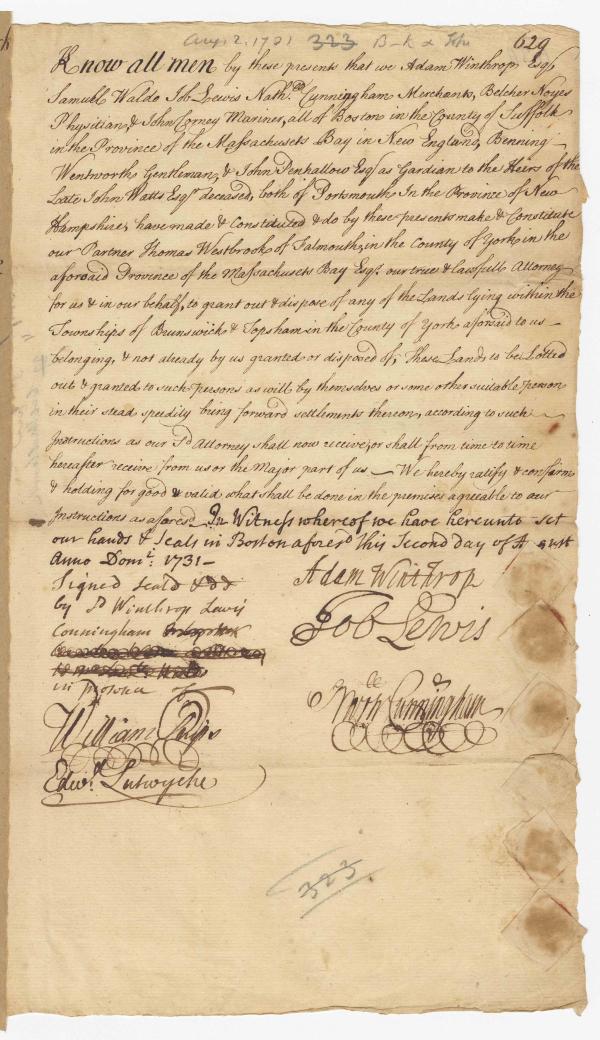 Aug. 2. 1731 323 B-K
629
Know all men by these presents that we Adam Winthrop Esqr
Samuel Waldo Job Lewis Nathll Cunningham Merchants, Belcher Noyes
Physitian, & John Corney Mariner, all of Boston in the County of Suffolk
in the Province of the Massachusets Bay in New England, Benning
Wentworth Gentleman, & John Penhallow Esqr as Gardian to the Heirs of the
Late John Watts Esqr deceased, both of Portsmouth In the Province of New
Hampshire, have made & Constituted & do by these presents make & Constitute
our Partner Thomas Westbrook of Falmouth, in the County of York, in the
aforsaid Province of the Massachusets Bay Esqr. our true & lawfull Attorney
for us & in our behalf, to grant out & dispose of any of the Lands lying within the
Townships of Brunswick & Topsham in the County of York aforsaid to us
belonging, & not already by us granted or disposed of, These Lands to be Lotted
out & granted to such persons as will by themselves or some other suitable person
in their stead speedily bring forward settlements thereon, according to such
Instructions as our sd Attorney shall now receive, or shall from time to time
hereafter receive from us or the Major part of us — We hereby ratify & confirm
& holding for good & valid what shall be done in the premises agreeable to our
Instructions as aforesd In Witness whereof we have hereunto set
our hands & Seals in Boston aforesd this Second day of August
Anno Domi: 1731 —
Signed Seald & dd
by sd Winthrop Lewis
Cunningham
in presence of
Adam Winthrop
Job Lewis
Nath ll Cunningham
William Phips
Edwd. Lutwyche
323